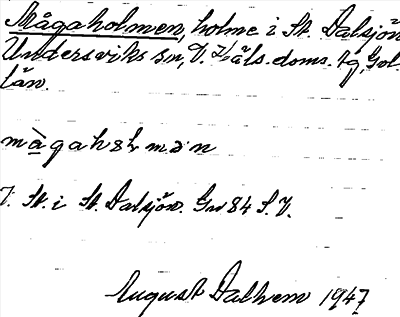 Mågaholmen, holme i St. Dalsjön
Undersviks sn, V. Häls. doms. tg, Gvl.
län.
màgahɔłmən
V. St. i St. Dalsjön. Gv 84 S.V.
August Dalhem 1947